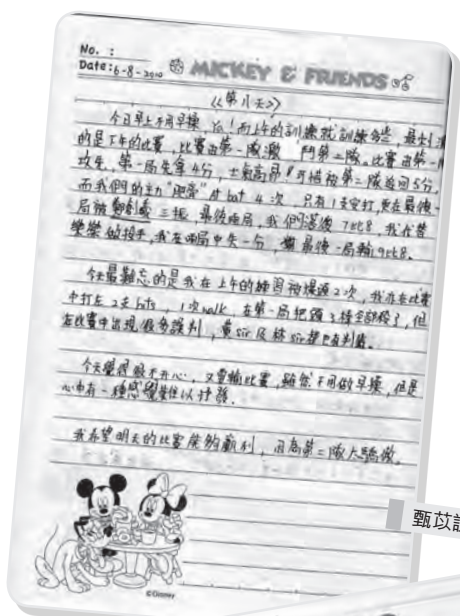 No. :
Date: 6-8-2010 MICKEY & FRIENDS
《第八天》
今日早上不用早操,Ya!而上午的訓練就訓練
的是下午的比賽,比賽由第一隊激鬥第二隊,比賽由第一
攻先,第一局先拿4分,士氣高昂!可惜被第二隊追回5分,
而我們的主力 at bat 4次,只有1支安打,更在最後一
局被 三振,最後尾局,我們落後7比8,我代替
樂樂做投手,我在尾局中失一分,最後一局輸9比8。
今天最難忘的是我在上午的練習被爆頭2次,我亦在比賽
中打左2支hits,1次walk,在第一局把頭3棒全部殺了,但
在比賽中出現很多誤判,黃sir及林sir都有判歪。
今天覺得極不開心,又要輸比賽,雖然不用做早操,但是
心中有一種感覺難以抒發。
我希望明天的比賽能夠贏利,因為第二隊太驕傲。
©Disney
甄苡